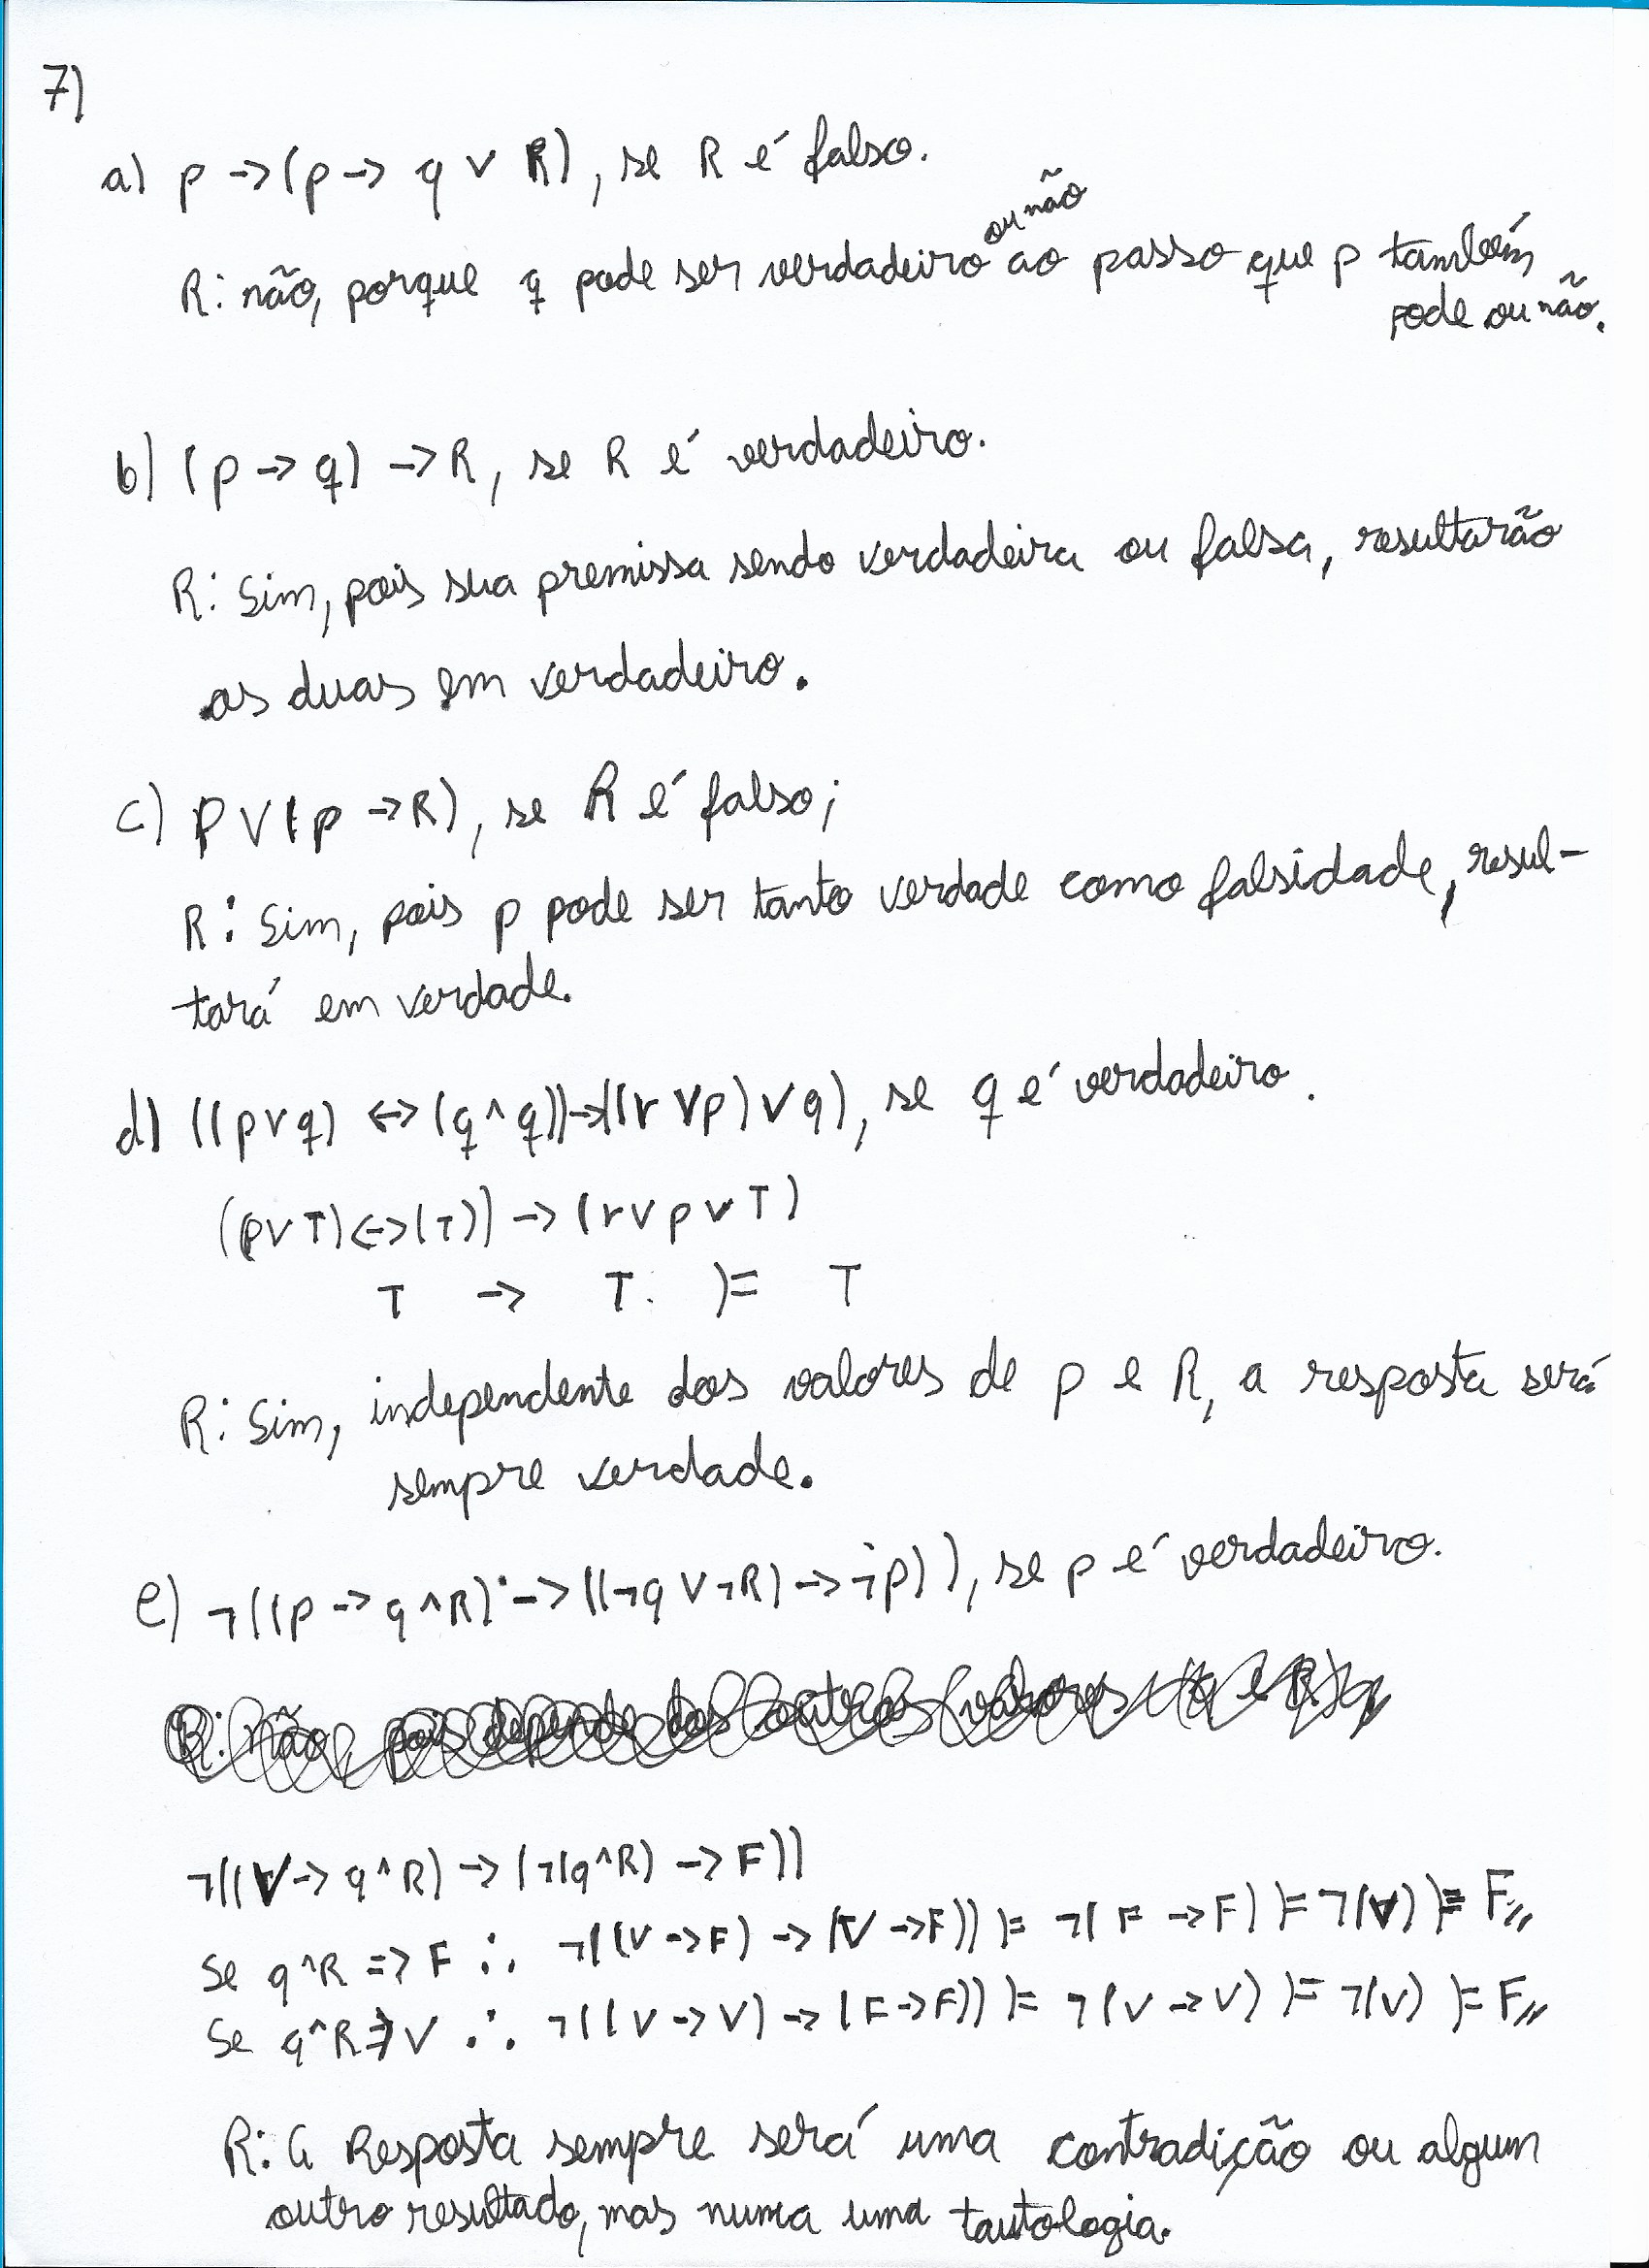 7)
a) p -> (p -> q v R), se R é falso.
R: não, porque q pode ser verdadeiro ou não ao passo que p também
pode ou não.
b) (p -> q) -> R, se R é verdadeiro.
R: Sim, pois sua premissa sendo verdadeira ou falsa, resultarão
as duas em verdadeiro.
c) p V (p -> R), se R é falso;
R: Sim, pois p pode ser tanto verdade como falsidade, resul-
tará em verdade.
d) ((p v q) <-> (q ^ q)) -> ((r V p) v q), se q é verdadeiro.
((p v T) <-> (T)) -> (r v p v T)
T -> T. ⊨ T
R: Sim, independente dos valores de p e R, a resposta será
sempre verdade.
e) ¬((p -> q ^ R) -> ((¬q V ¬R) -> ¬p)), se p é verdadeiro.
R: não, pois depende dos outros valores (q e R)
¬((V -> q ^ R) -> (¬(q ^ R) -> F))
Se q ^ R => F ∴ ¬((V -> F) -> (V -> F)) ⊨ ¬(F -> F) ⊨ ¬(V) ⊨ F,,
Se q ^ R => V ∴ ¬((V -> V) -> (F -> F)) ⊨ ¬(V -> V) ⊨ ¬(V) ⊨ F,,
R: A Resposta sempre será uma contradição ou algum
outro resultado, mas numca uma tautologia.